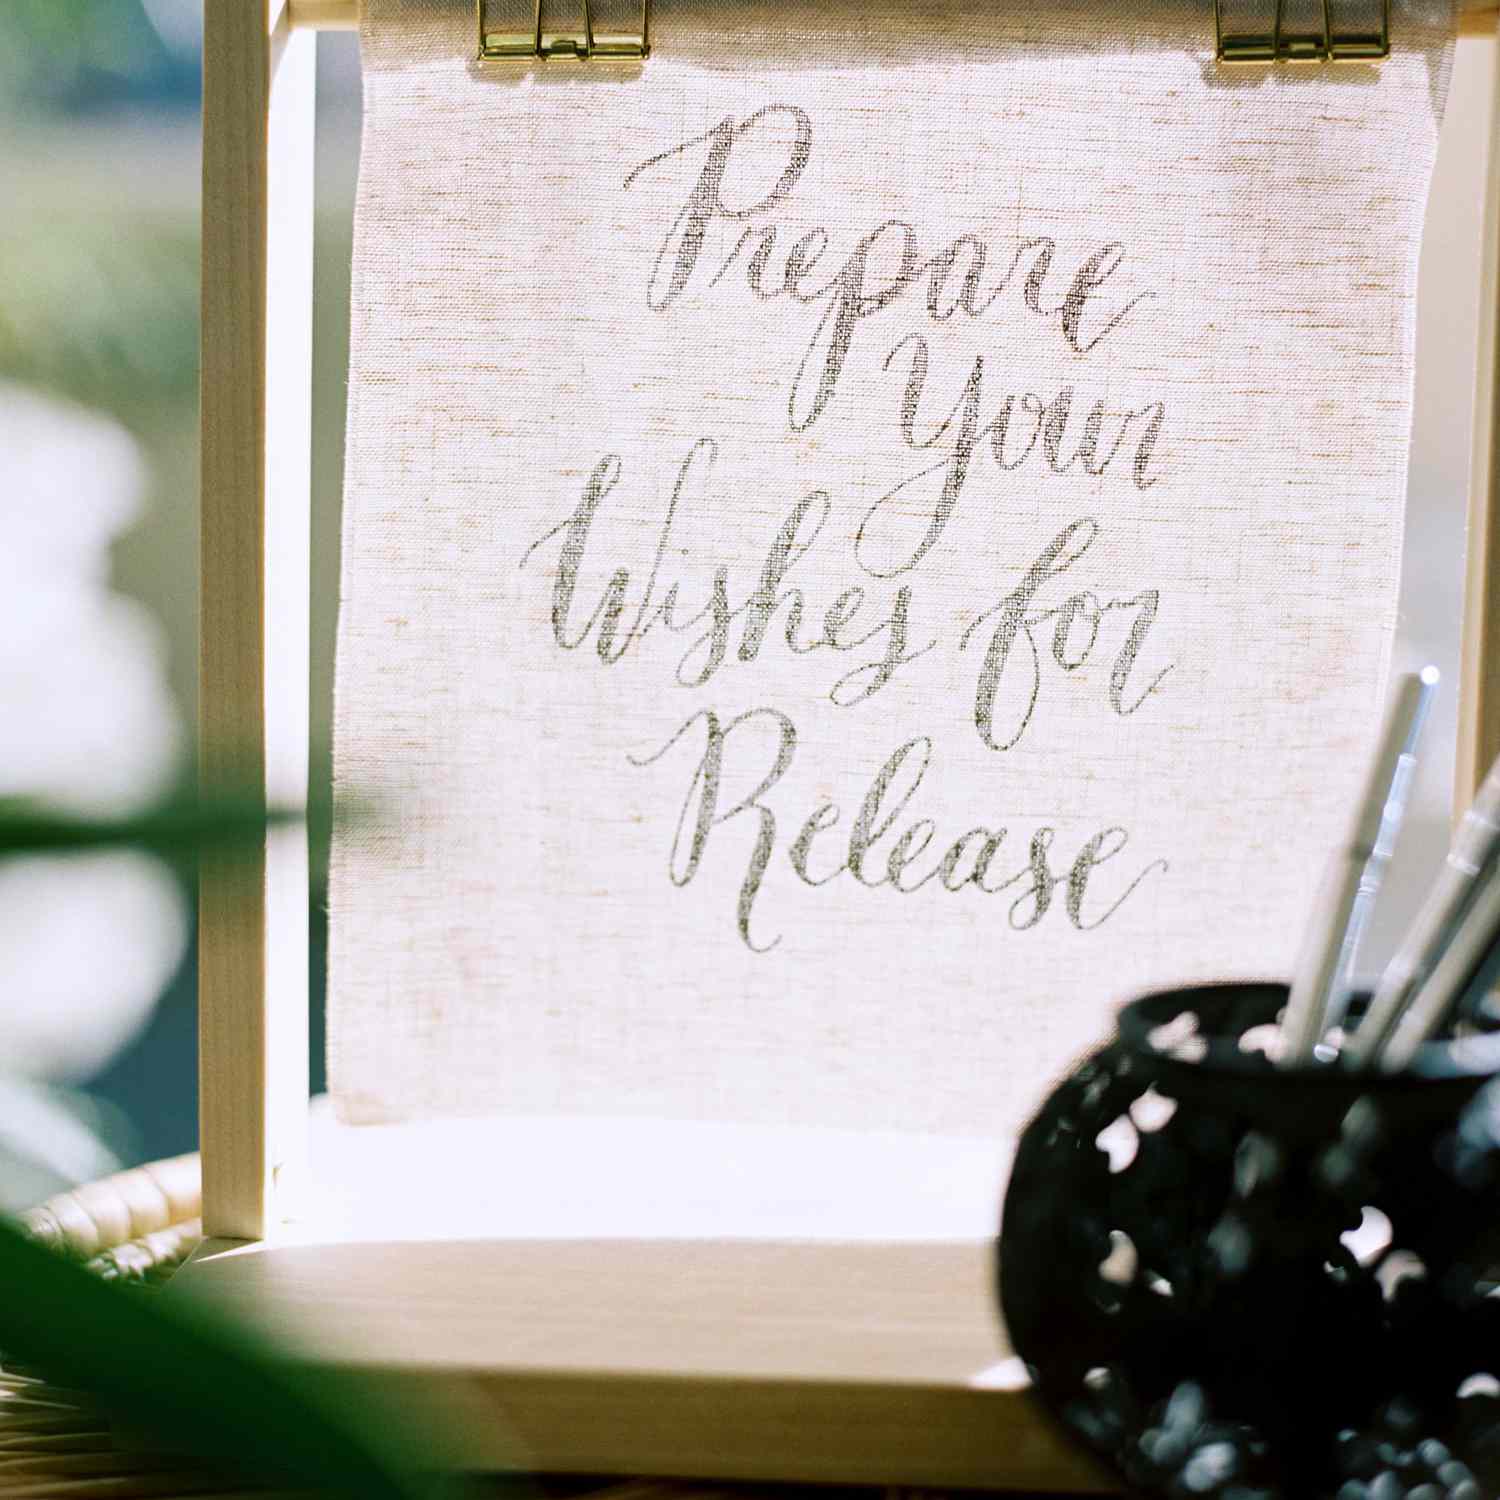 Prepare
Your
Wishes for
Release